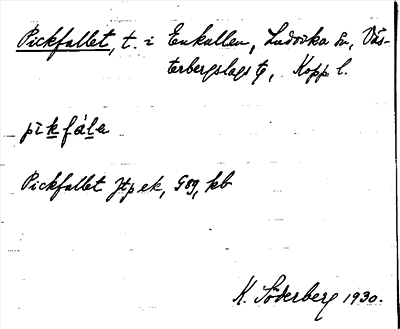 Pickfallet, t. i Enkullen, Ludvika sn, Väs-
terbergslags tg, Kopp l.
pìkfála
Pickfallet Jtp ek, Gsg, kb
K. Söderberg 1930.